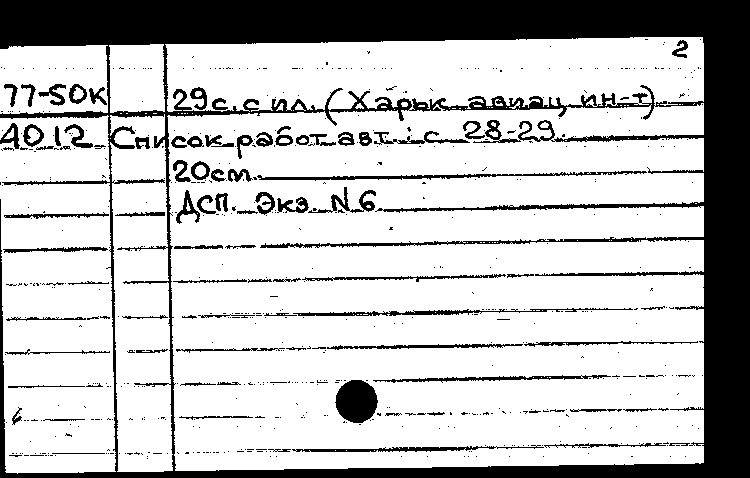 2
77-50к 29с. с ил. (Харьк. авиац. ин-т)
4012 Список работ авт.: с. 28-29.
20см.
ДСП. Экз. N6
6